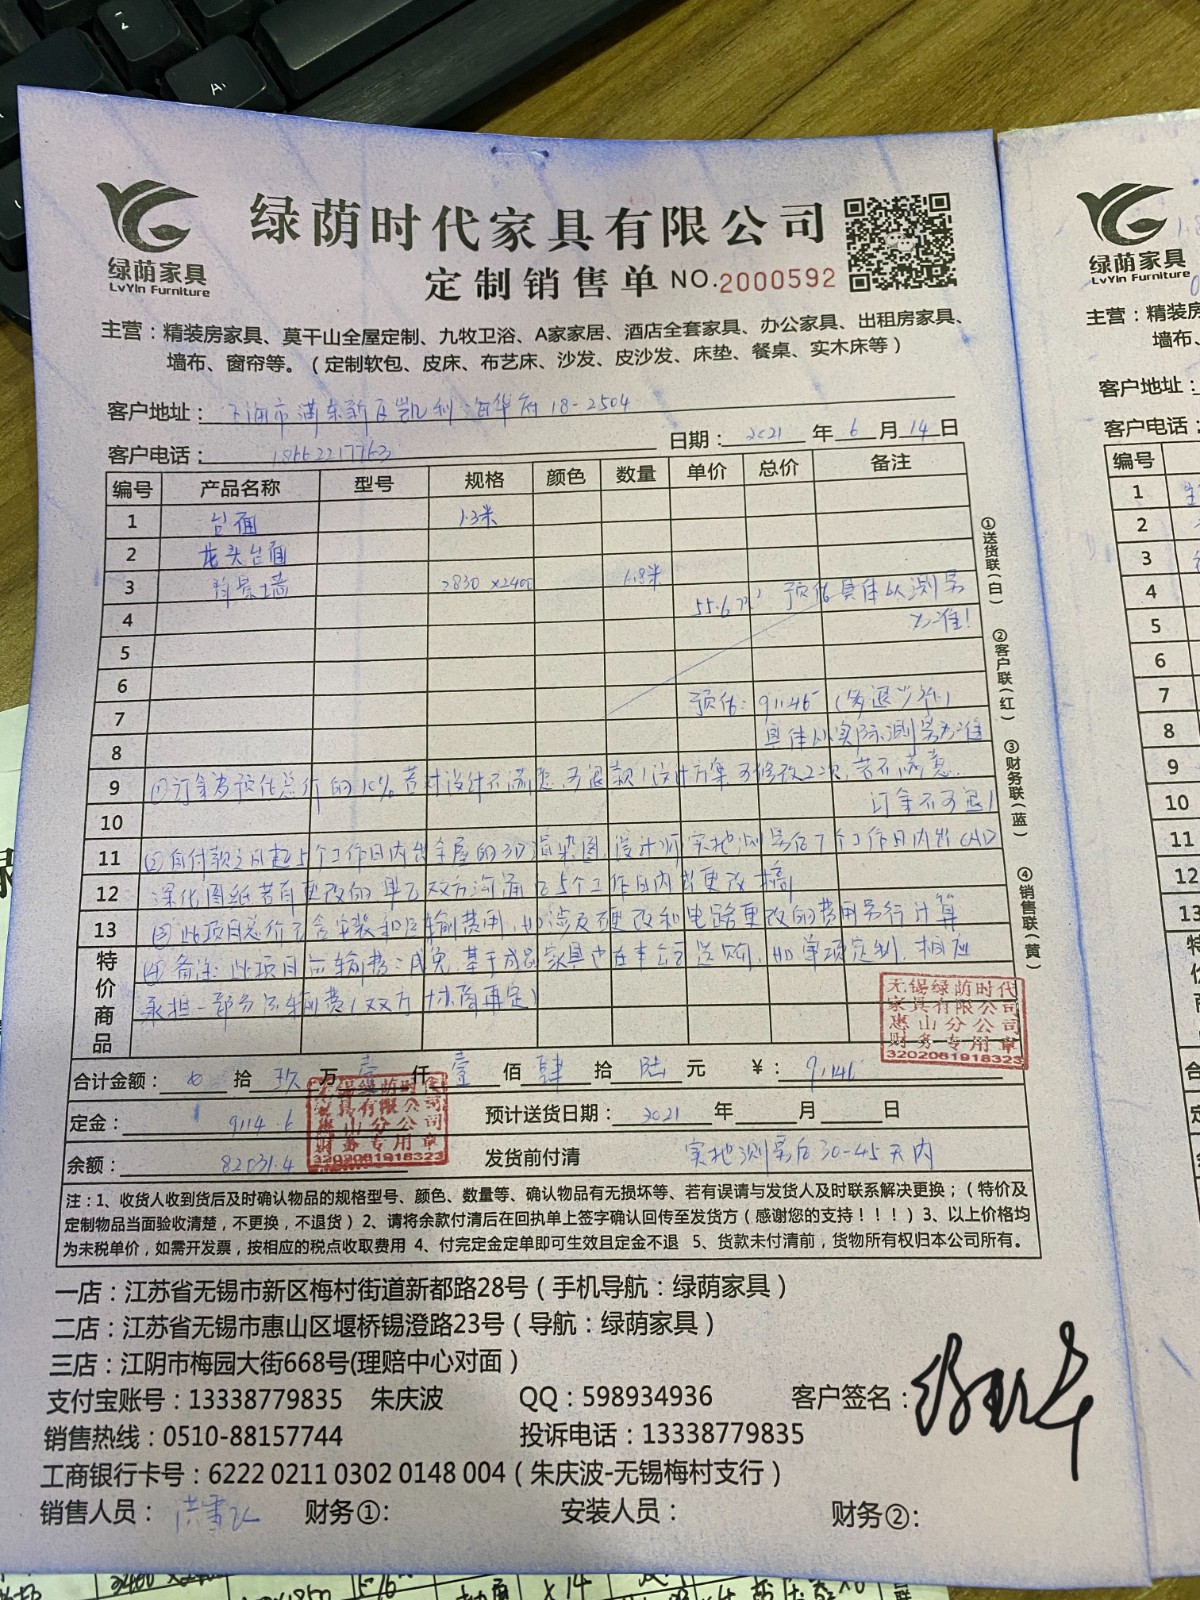 绿荫家具
LvYin Furniture
绿荫时代家具有限公司
定制销售单 NO.2000592
主营：精装房家具、莫干山全屋定制、九牧卫浴、A家家居、酒店全套家具、办公家具、出租房家具、
墙布、窗帘等。（定制软包、皮床、布艺床、沙发、皮沙发、床垫、餐桌、实木床等）
客户地址：上海市浦东新区凯利海华府18-2504
客户电话：18662217763
日期：2021年6月14日
编号 产品名称 型号 规格 颜色 数量 单价 总价 备注
1 台面 1.3米
2 龙头台面
3 背景墙 2830×2400 1.8米
4 55.6㎡ 预估具体以测量
为准！
5
6
7 预估：91146（多退少补）
8 具体以实际测量为准
9 ①订金为预估总价的10%，若对设计不满意，可退款！设计方案可修改2次，若不满意
10 订金不可退！
11 ②自付款之日起5个工作日内出全屋的3D渲染图，设计师实地测量后7个工作日内出CAD
12 深化图纸若有更改的单子双方沟通后5个工作日内出更改稿
13 ③此项目总价已含安装和运输费用，如涉及硬改和电路更改的费用另行计算
特价商品
④备注：此项目运输费已减免，基于成品家具也在本公司选购，如单项定制，相应
承担一部分运输费（双方协商再定）
①送货联（白） ②客户联（红） ③财务联（蓝） ④销售联（黄）
无锡绿荫时代
家具有限公司
惠山分公司
财务专用章
3202061918323
合计金额： 拾玖万壹仟壹佰肆拾陆元 ￥：91146
定金：9114.6 预计送货日期：2021年 月 日
无锡绿荫时代
家具有限公司
惠山分公司
财务专用章
3202061918323
余额：82031.4 发货前付清 实地测量后30-45天内
注：1、收货人收到货后及时确认物品的规格型号、颜色、数量等、确认物品有无损坏等、若有误请与发货人及时联系解决更换；（特价及
定制物品当面验收清楚，不更换，不退货）2、请将余款付清后在回执单上签字确认回传至发货方（感谢您的支持！！！）3、以上价格均
为未税单价，如需开发票，按相应的税点收取费用 4、付完定金定单即可生效且定金不退 5、货款未付清前，货物所有权归本公司所有。
一店：江苏省无锡市新区梅村街道新都路28号（手机导航：绿荫家具）
二店：江苏省无锡市惠山区堰桥锡澄路23号（导航：绿荫家具）
三店：江阴市梅园大街668号(理赔中心对面）
支付宝账号：13338779835 朱庆波 QQ：598934936 客户签名：
销售热线：0510-88157744 投诉电话：13338779835
工商银行卡号：6222 0211 0302 0148 004（朱庆波-无锡梅村支行）
销售人员： 财务①： 安装人员： 财务②：
绿荫家具
LvYin Furniture
主营：精装房
墙布、
客户地址：
客户电话：
编号
1
2
3
4
5
6
7
8
9
10
11
12
13